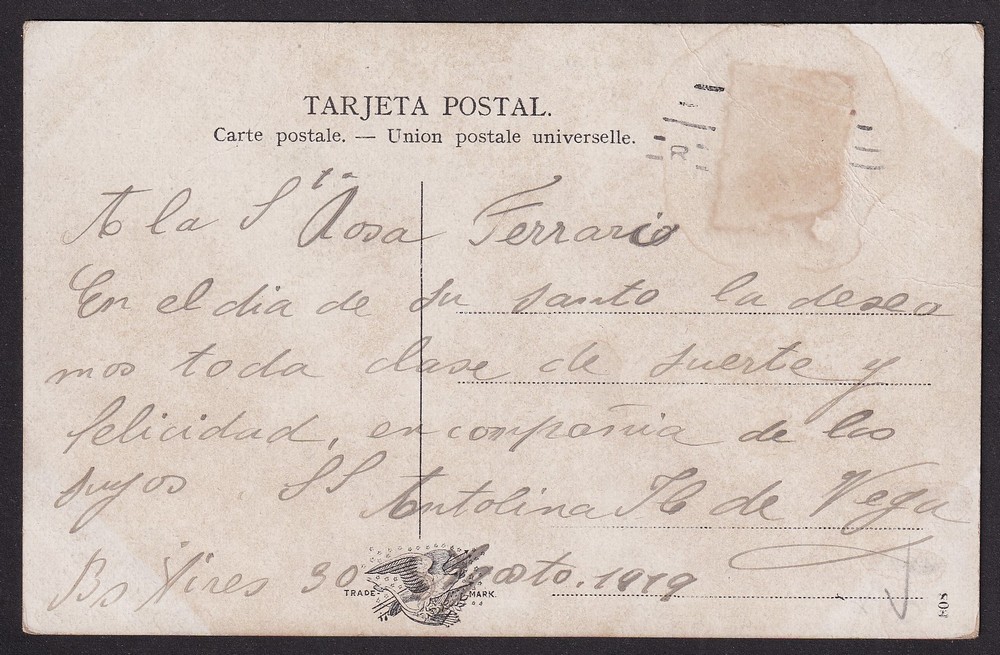 TARJETA POSTAL.
Carte postale. — Union postale universelle.
A la Sta Rosa Ferrario
En el dia de su santo la deseo
mos toda clase de suerte y
felicidad, en compañia de los
suyos SS Antolina H de Vega
Bs Aires 30 Agosto. 1919
TRADE MARK.
R